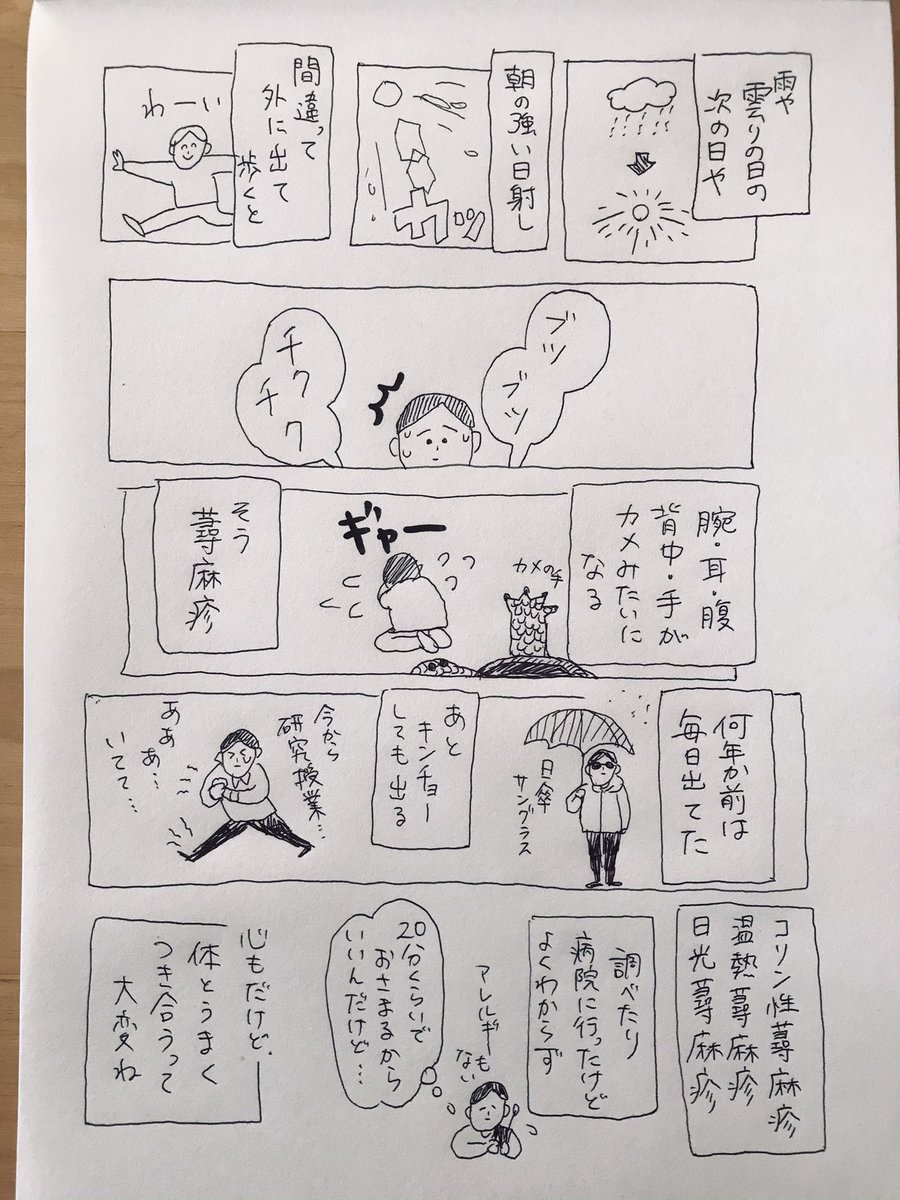 雨や
曇りの日の
次の日や
朝の強い日射し
カッ
間違って
外に出て
歩くと
わーい
ブツ
ブツ
チク
チク
腕・耳・腹
背中・手が
カメみたいに
なる
カメの手
ギャー
そう
蕁麻疹
何年か前は
毎日出てた
日傘
サングラス
あと
キンチョー
しても出る
今から
研究授業…
ああ
あ…
いてて…
コリン性蕁麻疹
温熱蕁麻疹
日光蕁麻疹
調べたり
病院に行ったけど
よくわからず
アレルギーも
ない
20分くらいで
おさまるから
いいんだけど…
心もだけど、
体とうまく
つき合うって
大変ね